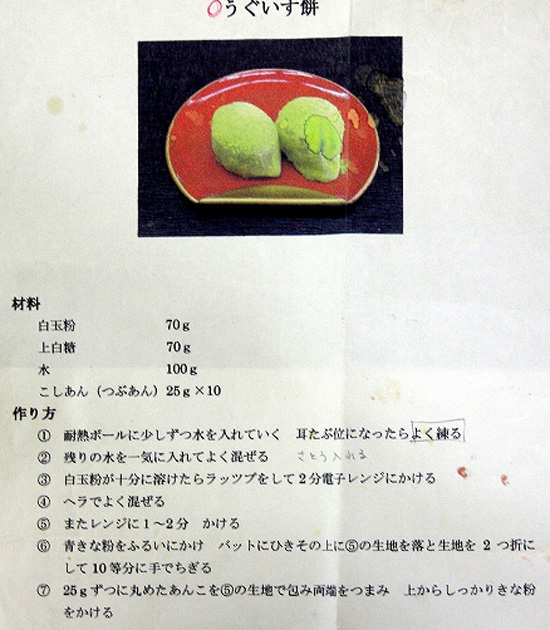 ○うぐいす餅
材料
白玉粉 70g
上白糖 70g
水 100g
こしあん(つぶあん)25g×10
作り方
① 耐熱ボールに少しずつ水を入れていく 耳たぶ位になったらよく練る
② 残りの水を一気に入れてよく混ぜる さとう入れる
③ 白玉粉が十分に溶けたらラッップをして2分電子レンジにかける
④ ヘラでよく混ぜる
⑤ またレンジに1~2分 かける
⑥ 青きな粉をふるいにかけ バットにひきその上に⑤の生地を落と生地を 2 つ折に
して10等分に手でちぎる
⑦ 25gずつに丸めたあんこを⑤の生地で包み両端をつまみ 上からしっかりきな粉
をかける